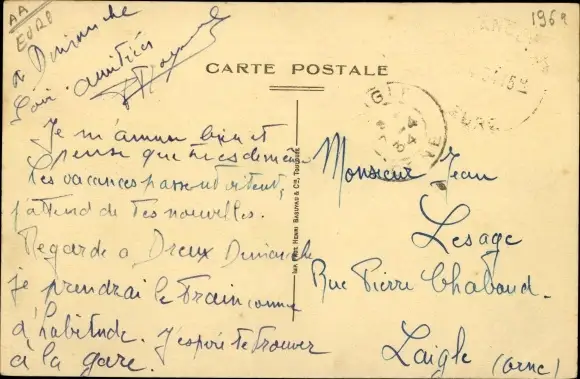 AA
EURO
1962
à Dimanche
Soir. amitiés
CARTE POSTALE
Je m'amuse bien et
pense que tu es de même
Les vacances passent vite
j'attend de tes nouvelles.
Regarde à Dreux Dimanche
je prendrai le train comme
d'habitude. J'espère te trouver
à la gare.
IMP. PHOT. HENRI BASUYAU & CO, TOULOUSE
EURE
Monsieur Jean
Lesage
Rue Pierre Chaboud.
Laigle (Orne)